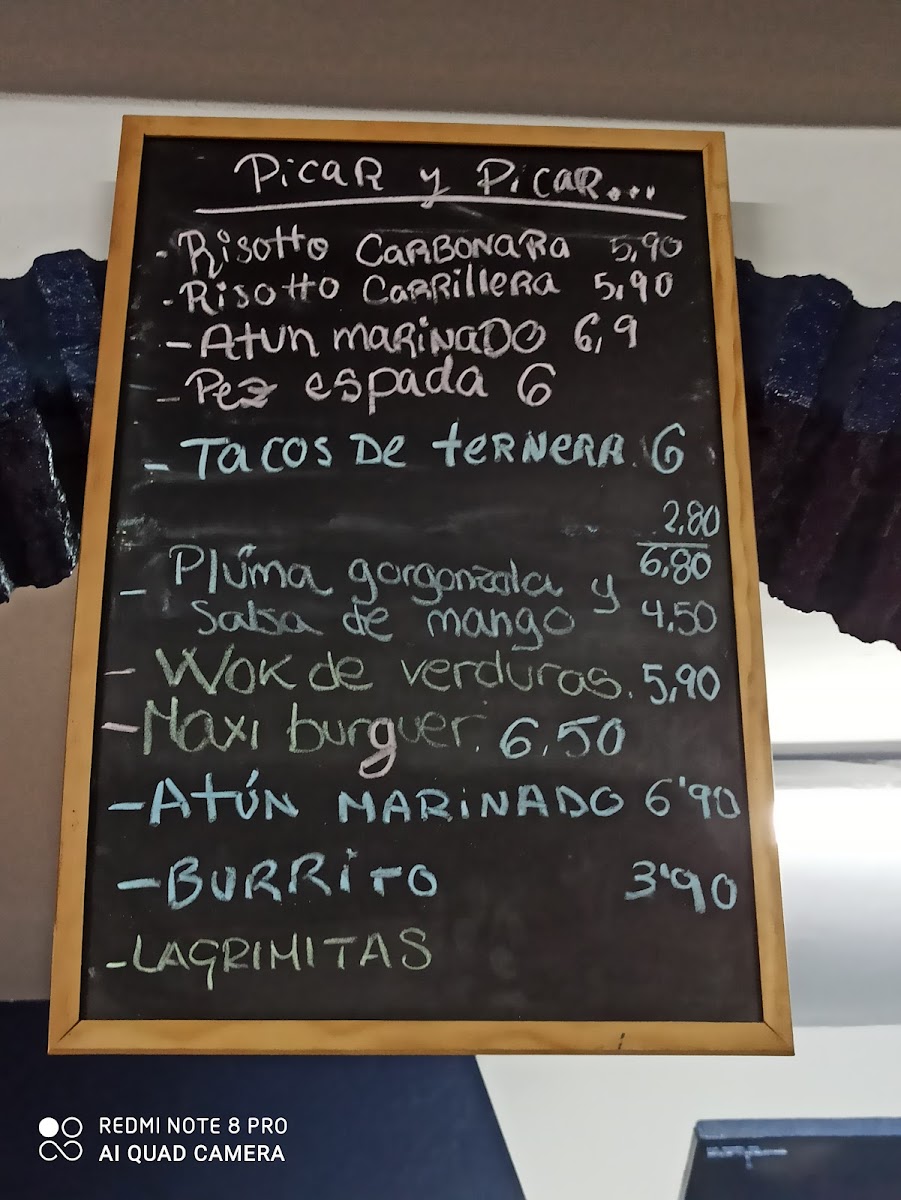 Picar y Picar...
- Risotto CARBONARA 5,90
- Risotto CARRILLERA 5,90
- Atun marinado 6,9
- Pez espada 6
- Tacos De ternera. 6
2,80
6,80
- Pluma gorgonzola y
salsa de mango 4,50
- Wok de verduras. 5,90
- Maxi burguer. 6,50
- ATÚN MARINADO 6'90
- BURRITO 3'90
- LAGRIMITAS
REDMI NOTE 8 PRO
AI QUAD CAMERA